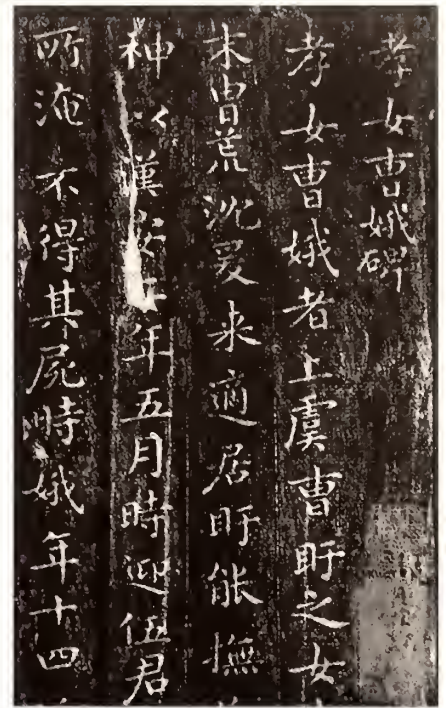 孝女曹娥碑
孝女曹娥者上虞曹盱之女
末胄荒沉爰来適居盱能撫
神以漢安二年五月時迎伍君
所淹不得其屍時娥年十四